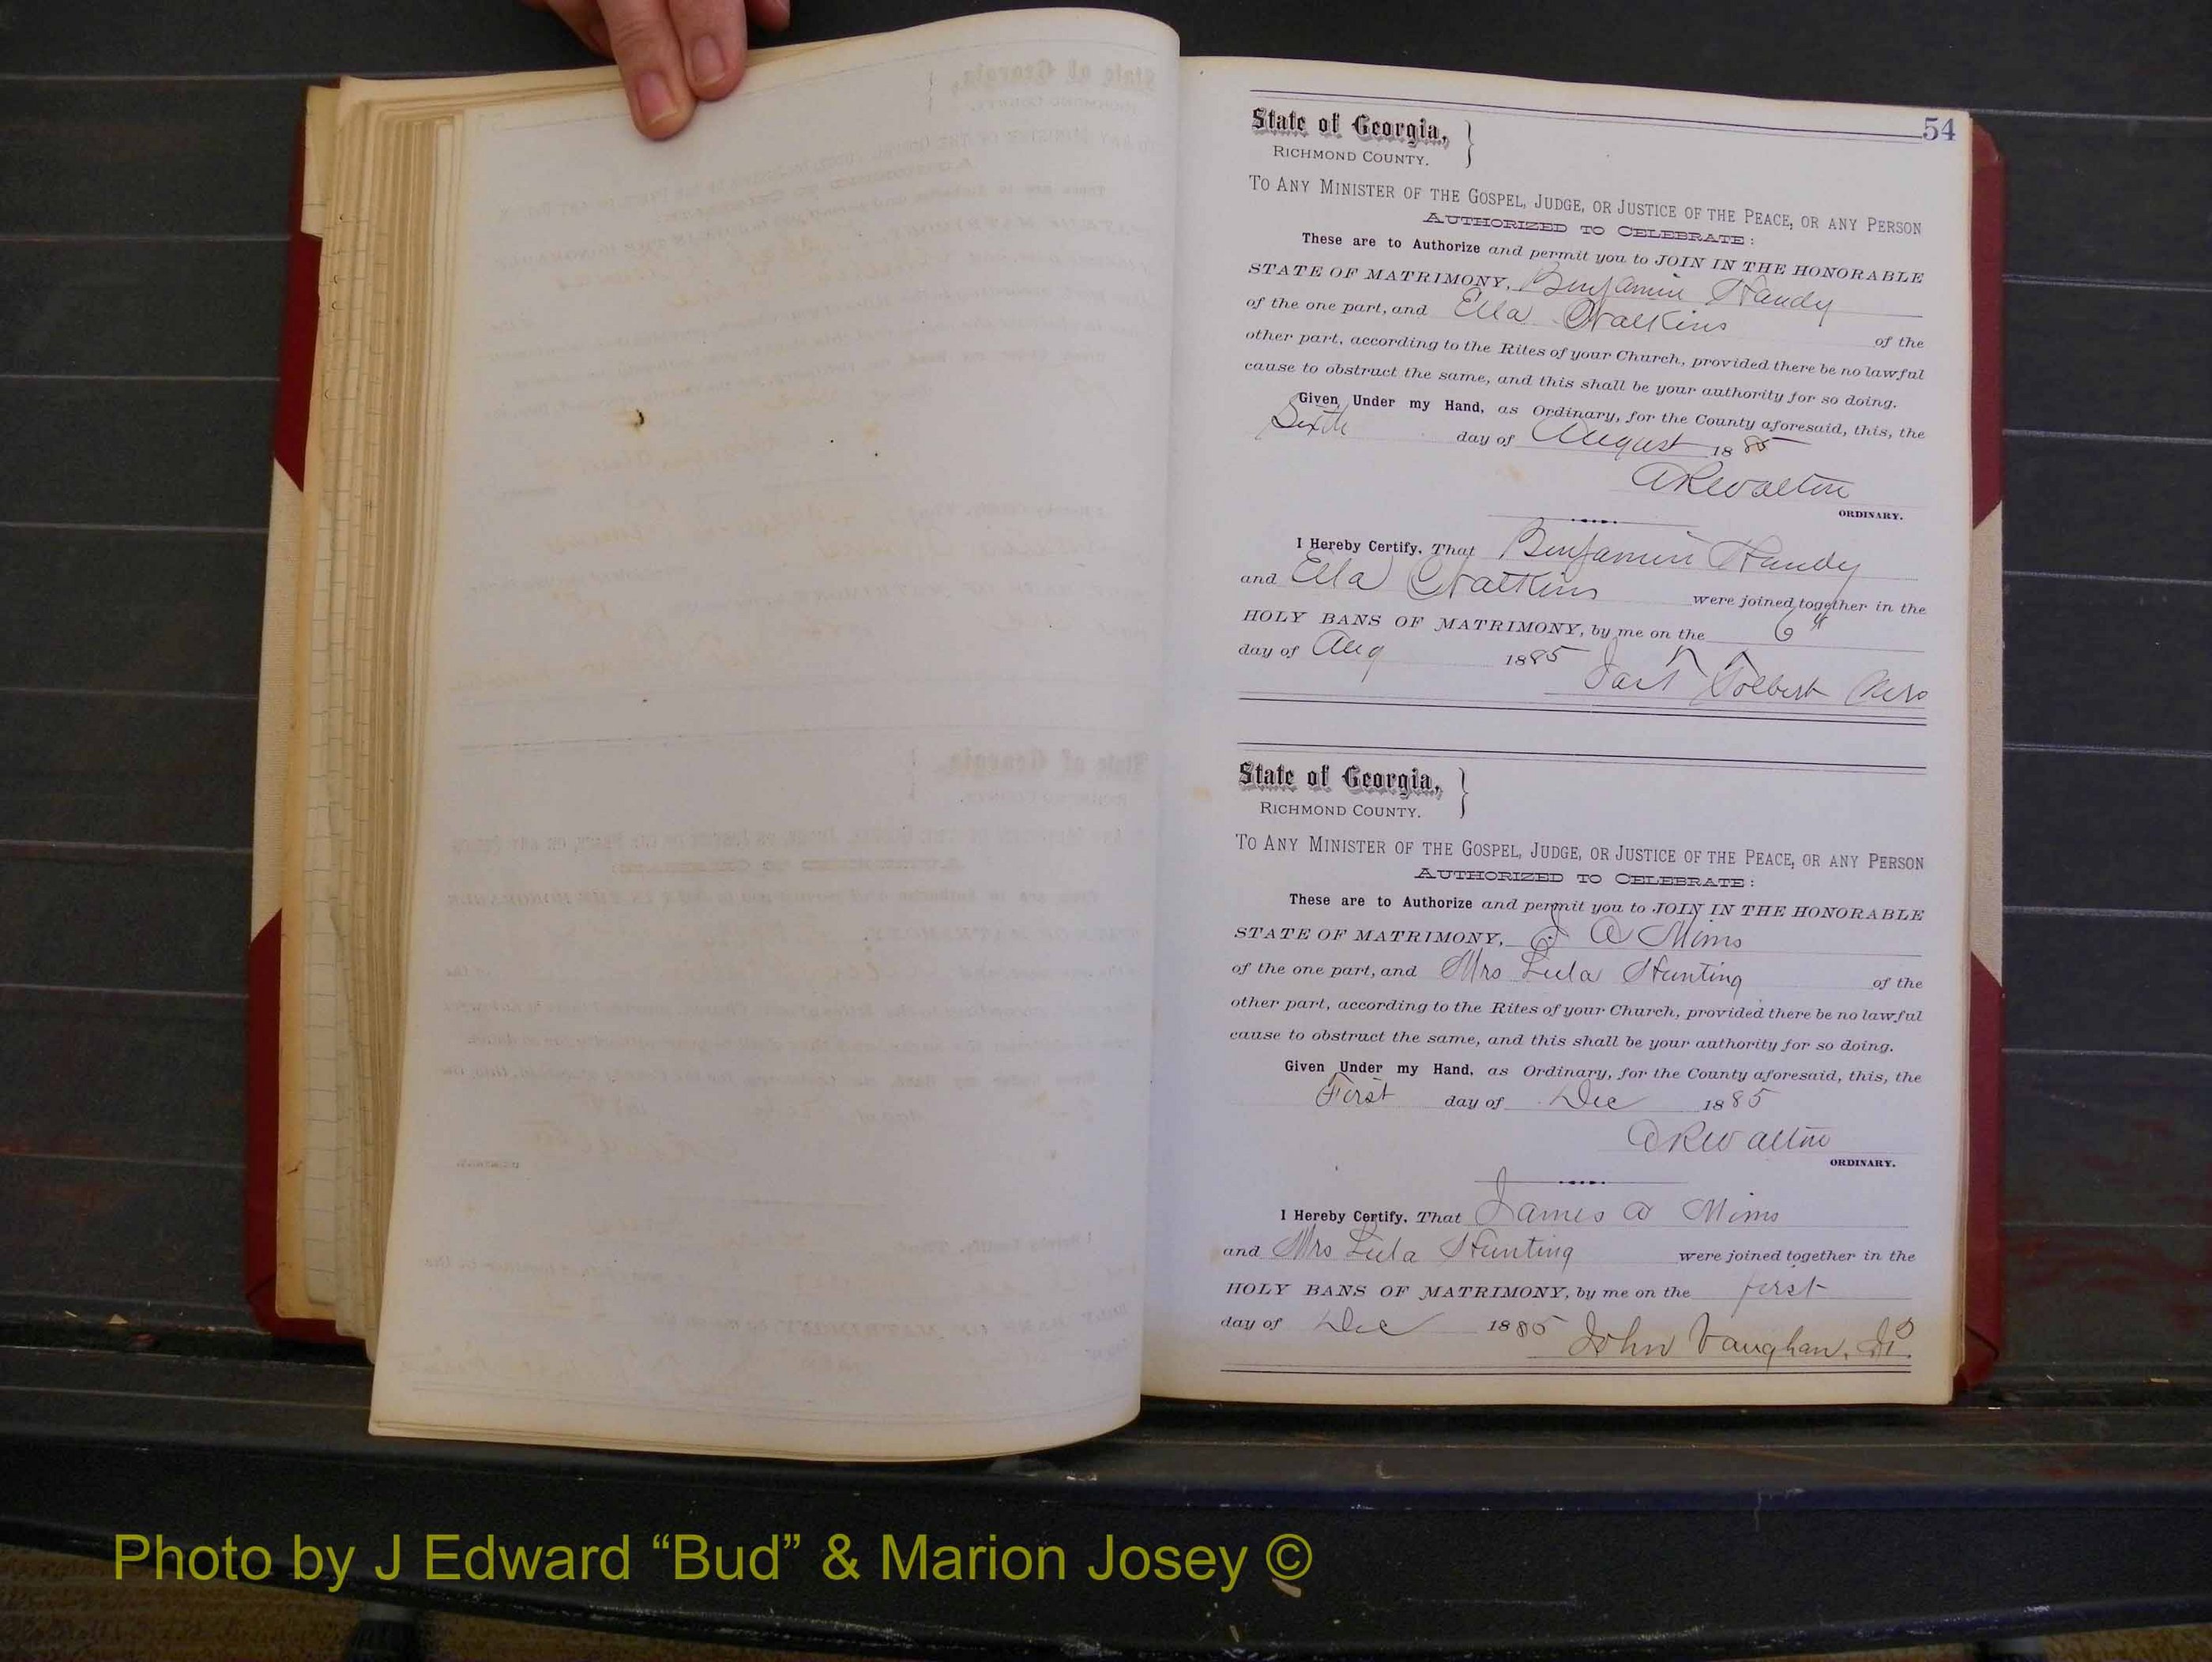 54
State of Georgia,
RICHMOND COUNTY.
TO ANY MINISTER OF THE GOSPEL, JUDGE, OR JUSTICE OF THE PEACE, OR ANY PERSON
AUTHORIZED TO CELEBRATE:
These are to Authorize and permit you to JOIN IN THE HONORABLE
STATE OF MATRIMONY, Benjamin Handy
of the one part, and Ella Watkins of the
other part, according to the Rites of your Church, provided there be no lawful
cause to obstruct the same, and this shall be your authority for so doing.
Given Under my Hand, as Ordinary, for the County aforesaid, this, the
Sixth day of August 1885
A R Walton
ORDINARY.
I Hereby Certify, That Benjamin Handy
and Ella Watkins were joined together in the
HOLY BANS OF MATRIMONY, by me on the 6th
day of Aug 1885 Tolbert
State of Georgia,
RICHMOND COUNTY.
TO ANY MINISTER OF THE GOSPEL, JUDGE, OR JUSTICE OF THE PEACE, OR ANY PERSON
AUTHORIZED TO CELEBRATE:
These are to Authorize and permit you to JOIN IN THE HONORABLE
STATE OF MATRIMONY, J A Mims
of the one part, and Mrs Lula Hunting of the
other part, according to the Rites of your Church, provided there be no lawful
cause to obstruct the same, and this shall be your authority for so doing.
Given Under my Hand, as Ordinary, for the County aforesaid, this, the
First day of Dec 1885
A R Walton
ORDINARY.
I Hereby Certify, That James A Mims
and Mrs Lula Hunting were joined together in the
HOLY BANS OF MATRIMONY, by me on the first
day of Dec 1885 John Vaughan,
Photo by J Edward “Bud” & Marion Josey ©